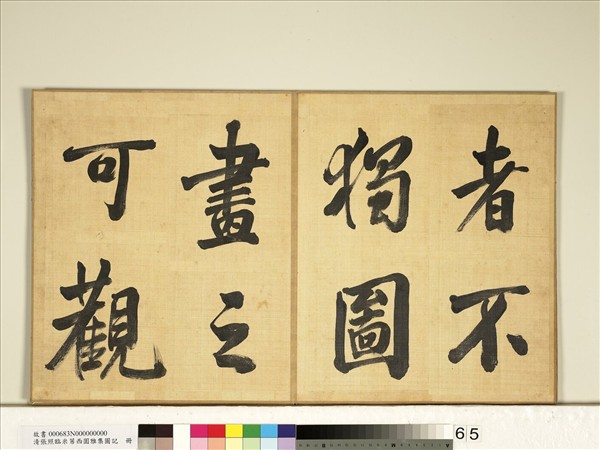 者不
獨圖
畫之
可觀
故書 000683N000000000
清張照臨米芾西園雅集圖記 冊
65